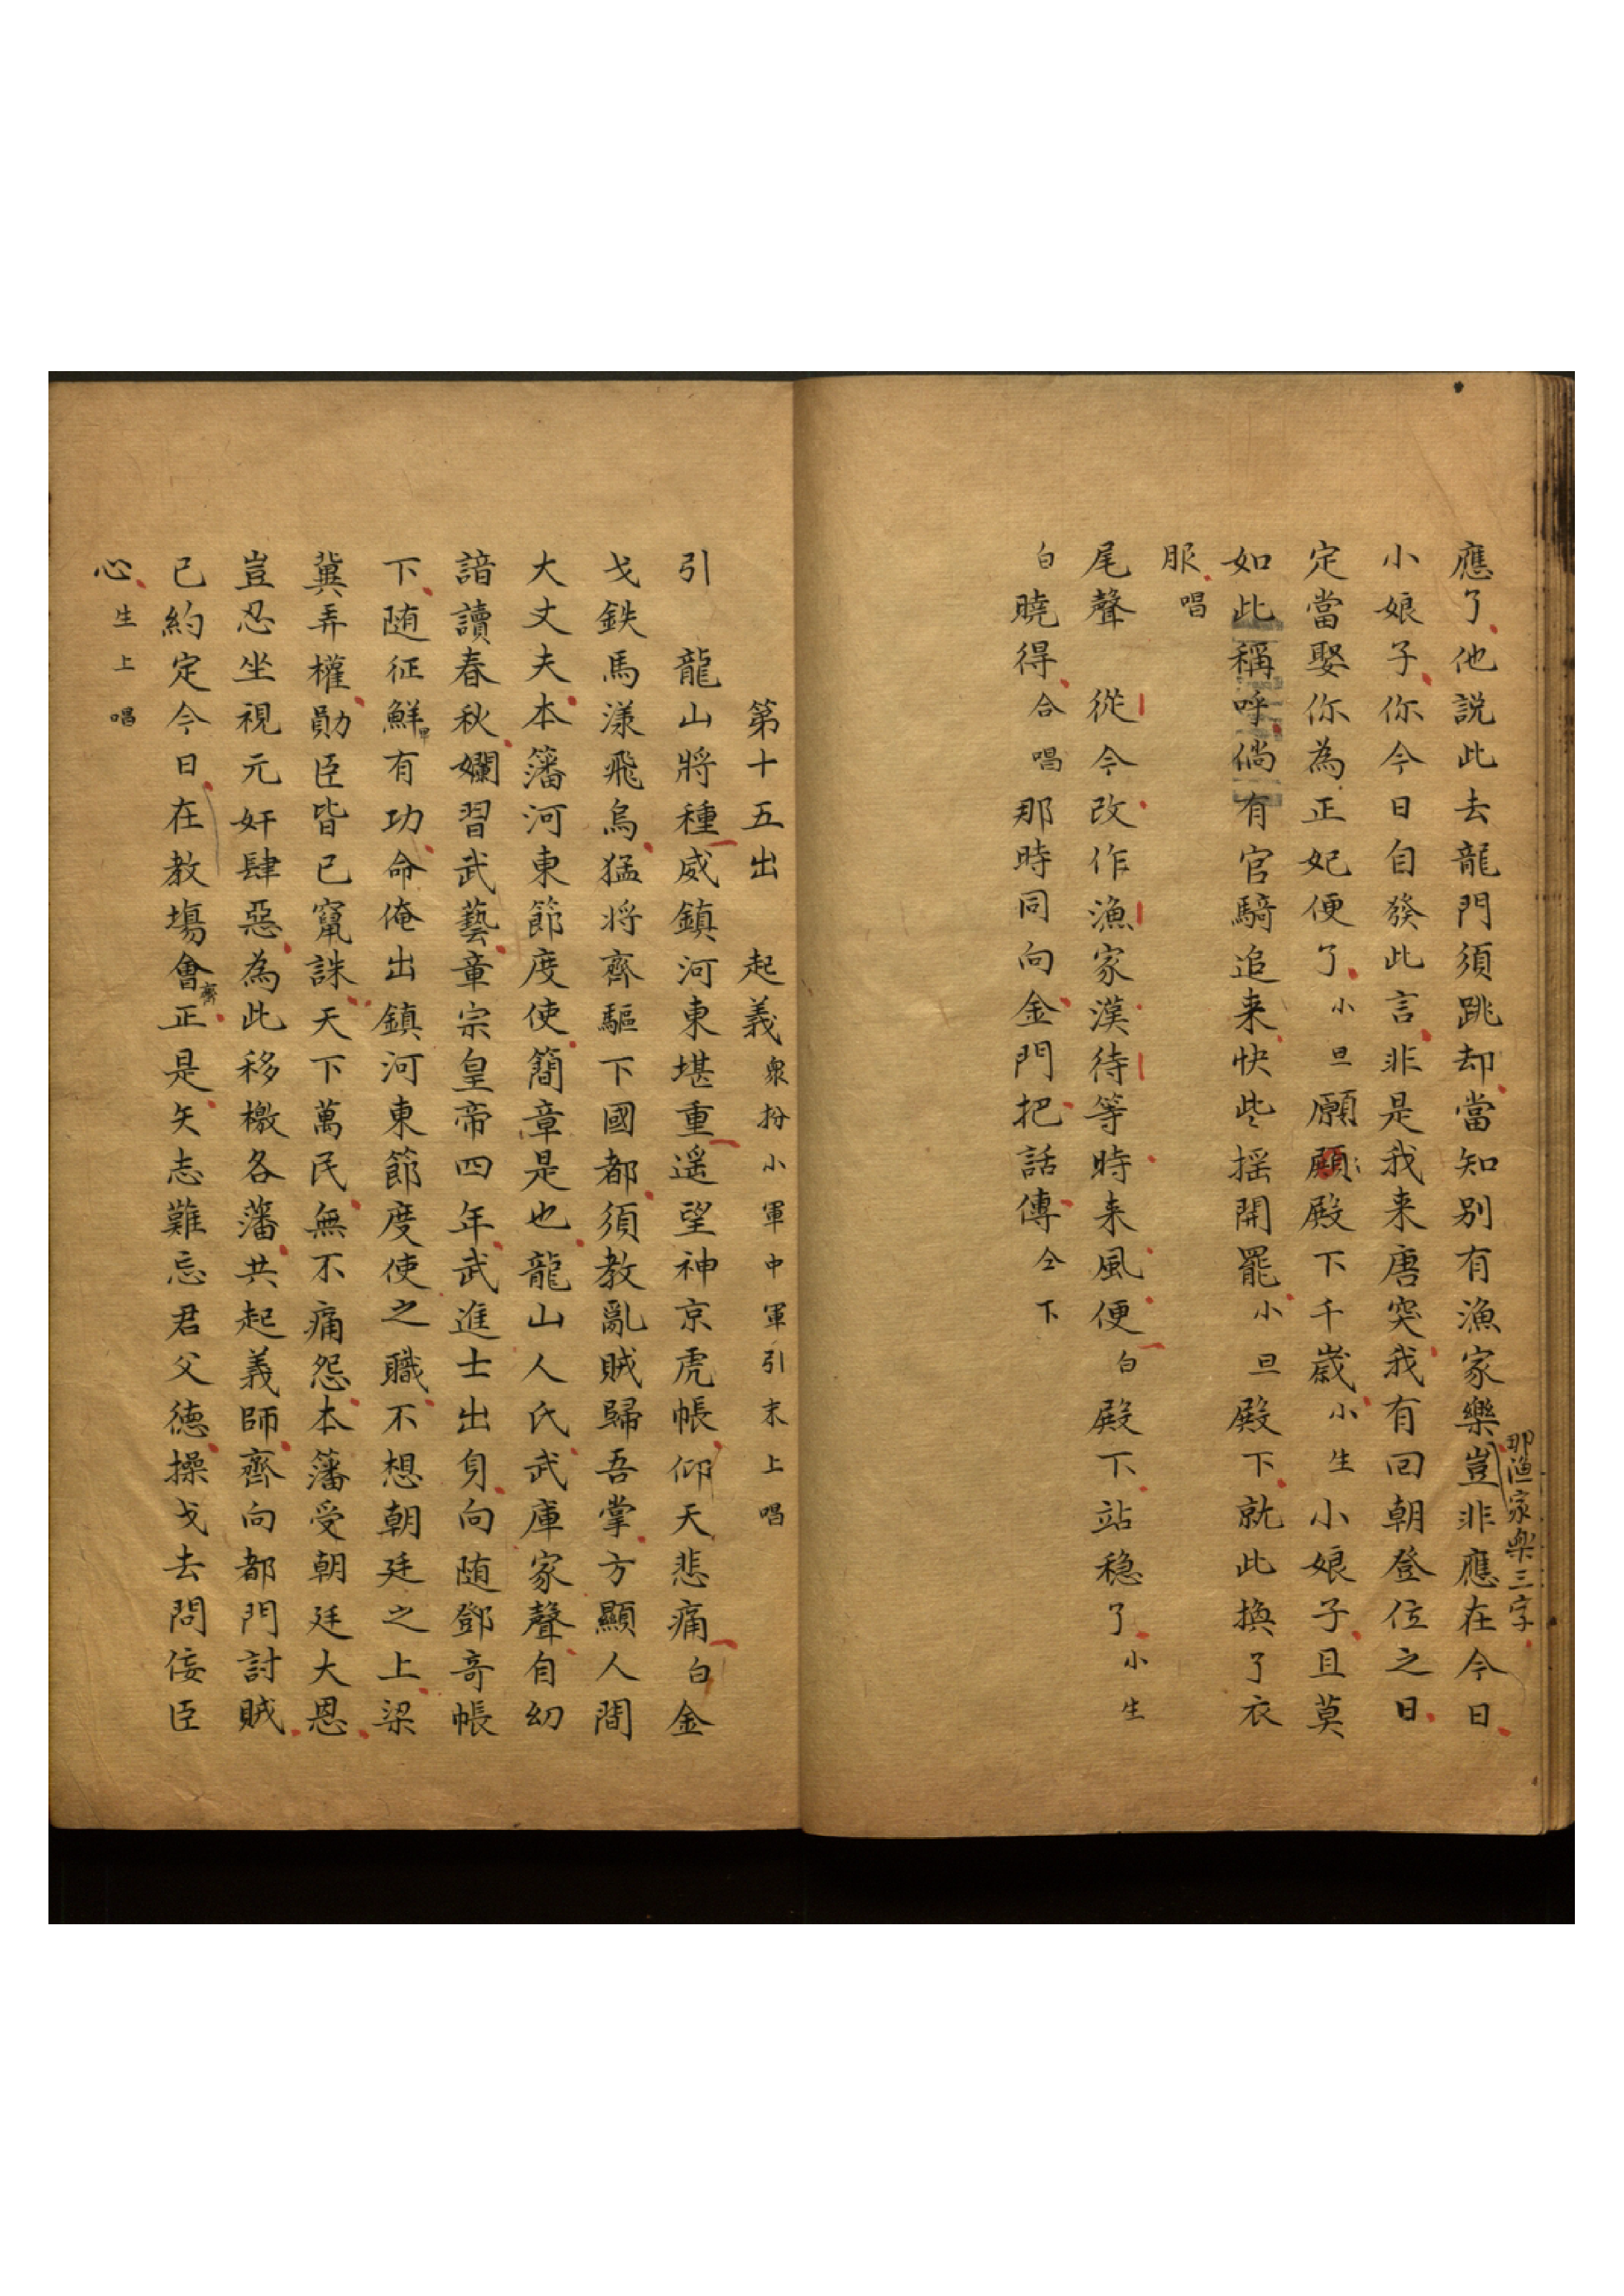 應了他説此去龍門須跳却當知别有漁家樂豈非應在今日
那漁家樂三字
小娘子你今日自發此言非是我来唐突我有回朝登位之日
定當娶你為正妃便了小旦願願殿下千歲小生小娘子且莫
如此稱呼倘有官騎追来快些摇開罷小旦殿下就此換了衣
服唱
尾聲 從今改作漁家漢待等時来風便白殿下站稳了小生
白曉得合唱那時同向金門把話傳仝下
第十五出 起義衆扮小軍中軍引末上唱
引 龍山將種威鎮河東堪重遥望神京虎帳仰天悲痛白金
戈鉄馬漾飛烏猛将齊驅下國都須教亂賊歸吾掌方顯人間
大丈夫本藩河東節度使簡章是也龍山人氏武庫家聲自幼
諳讀春秋嫻習武藝章宗皇帝四年武進士出身向随鄧奇帳
下随征鮮卑有功命俺出鎮河東節度使之職不想朝廷之上梁
冀弄權勛臣皆已竄誅天下萬民無不痛怨本藩受朝廷大恩
豈忍坐視元奸肆惡為此移檄各藩共起義師齊向都門討賊
已約定今日在教塲會齊正是矢志難忘君父德操戈去問佞臣
心生上唱